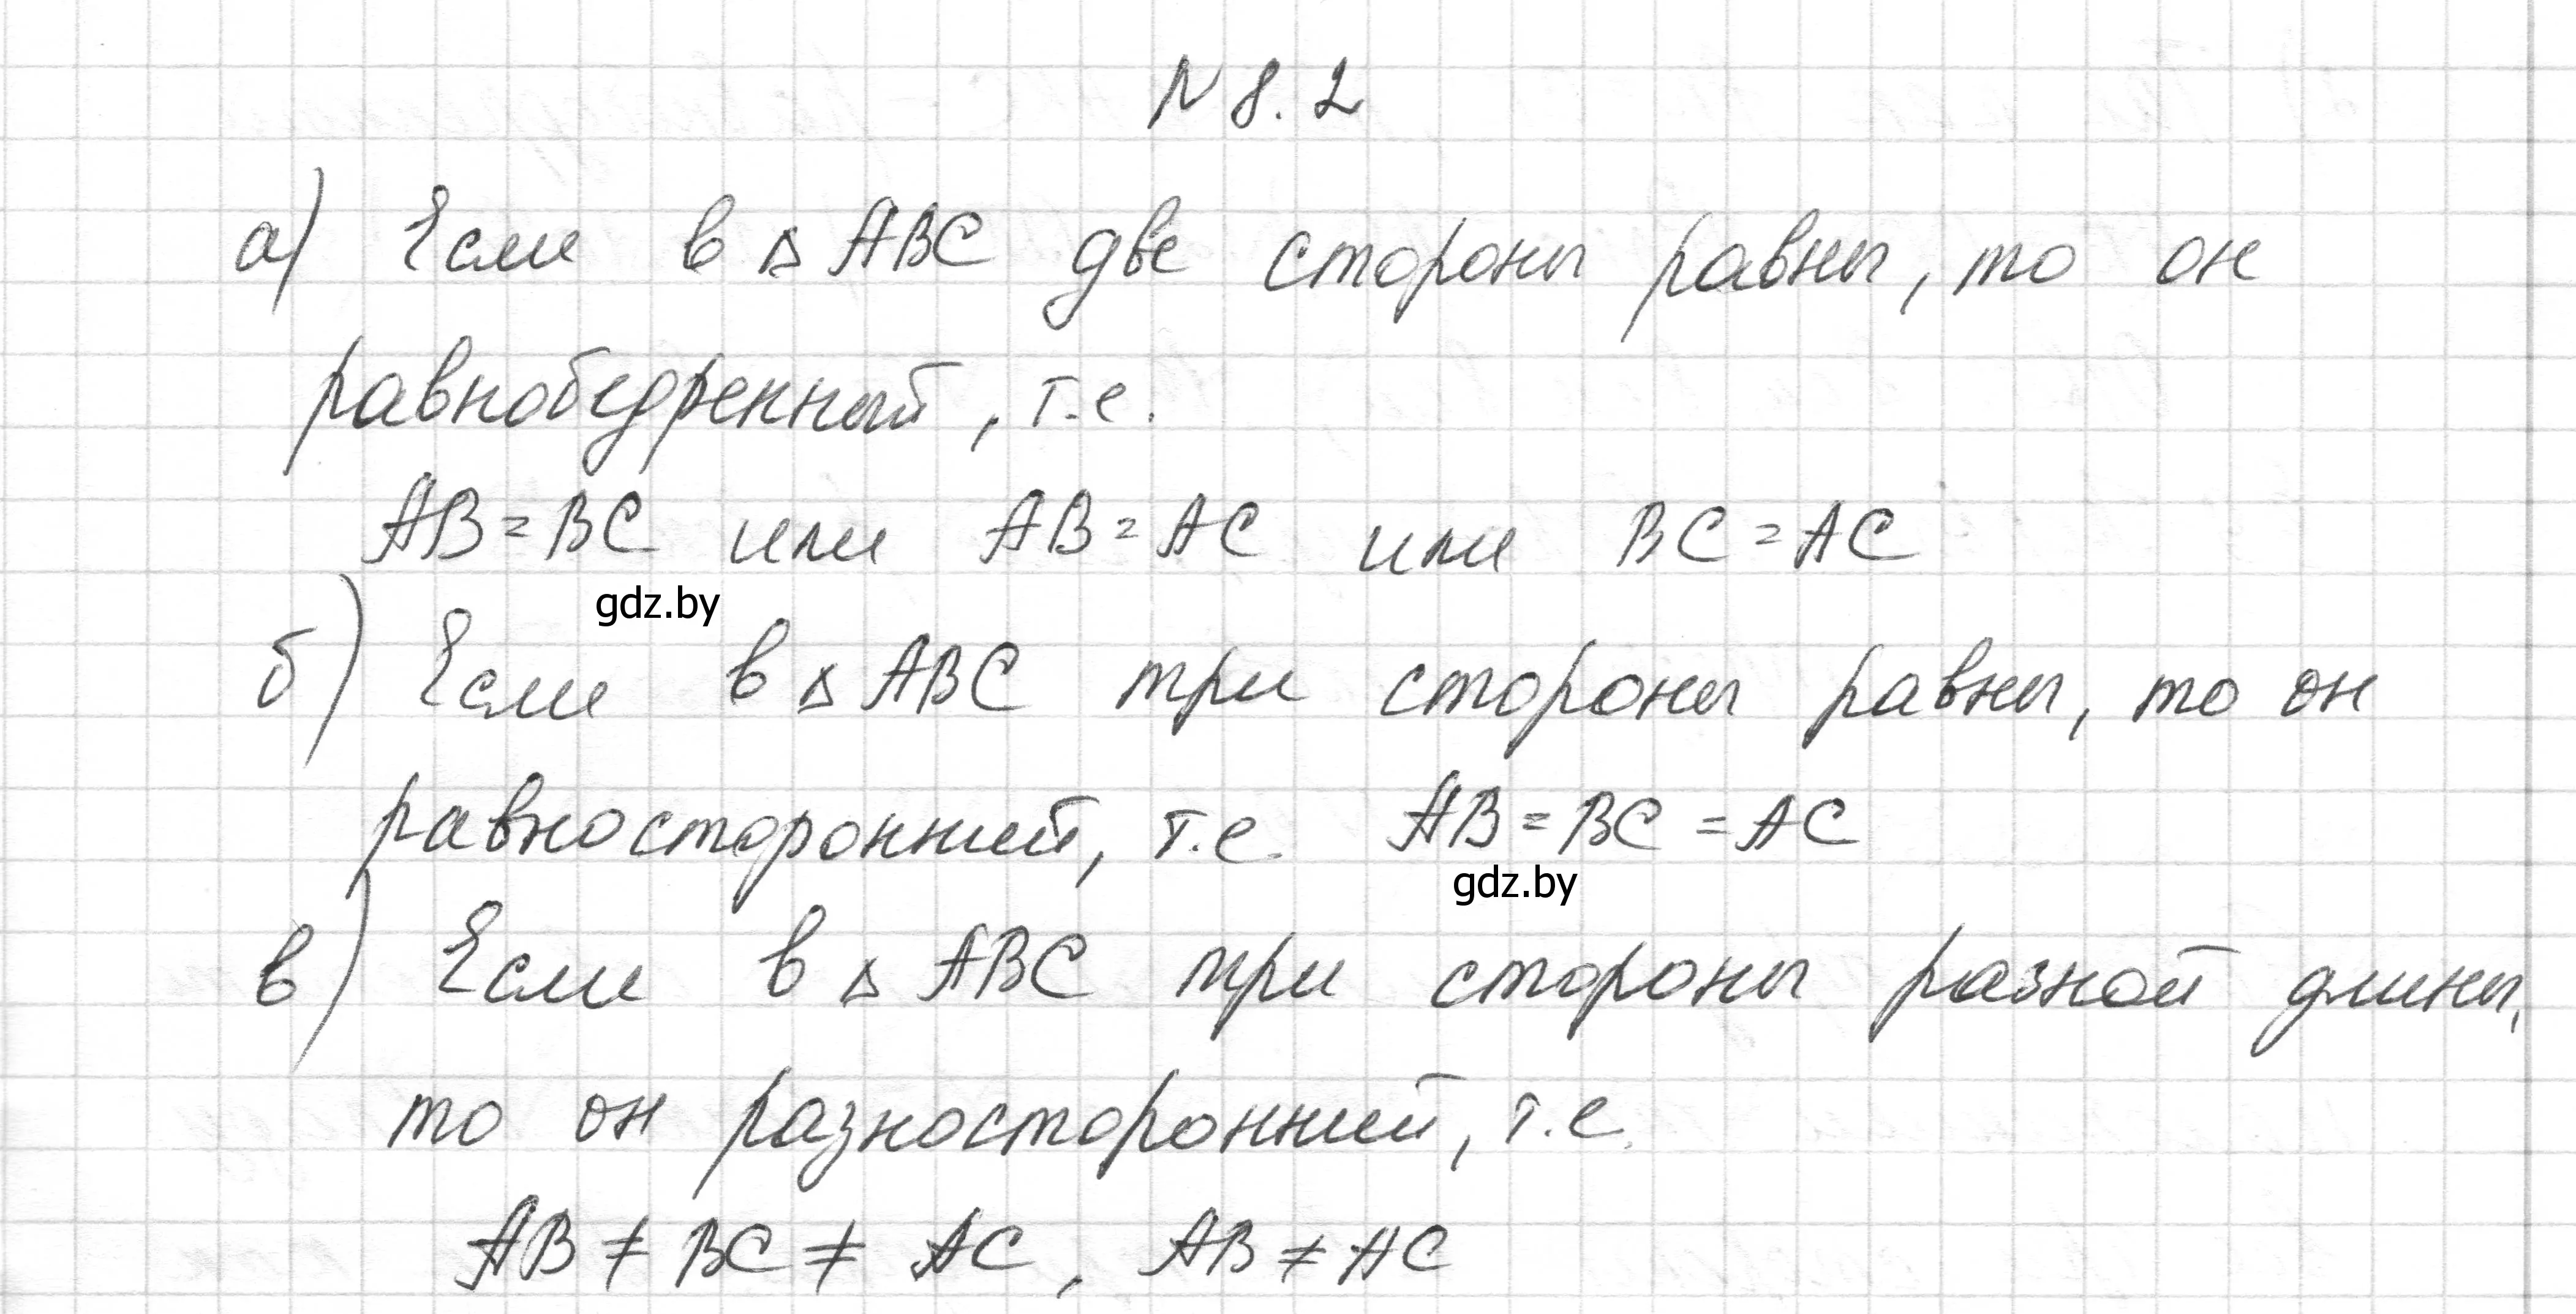 N 8. 2
а) Если в △ ABC две стороны равны, то он
равнобедренный, т.е.
AB = BC или AB = AC или BC = AC
gdz.by
б) Если в △ ABC три стороны равны, то он
равносторонний, т.е. AB = BC = AC
gdz.by
в) Если в △ ABC три стороны разной длины,
то он разносторонний, т.е.
AB ≠ BC ≠ AC, AB ≠ AC